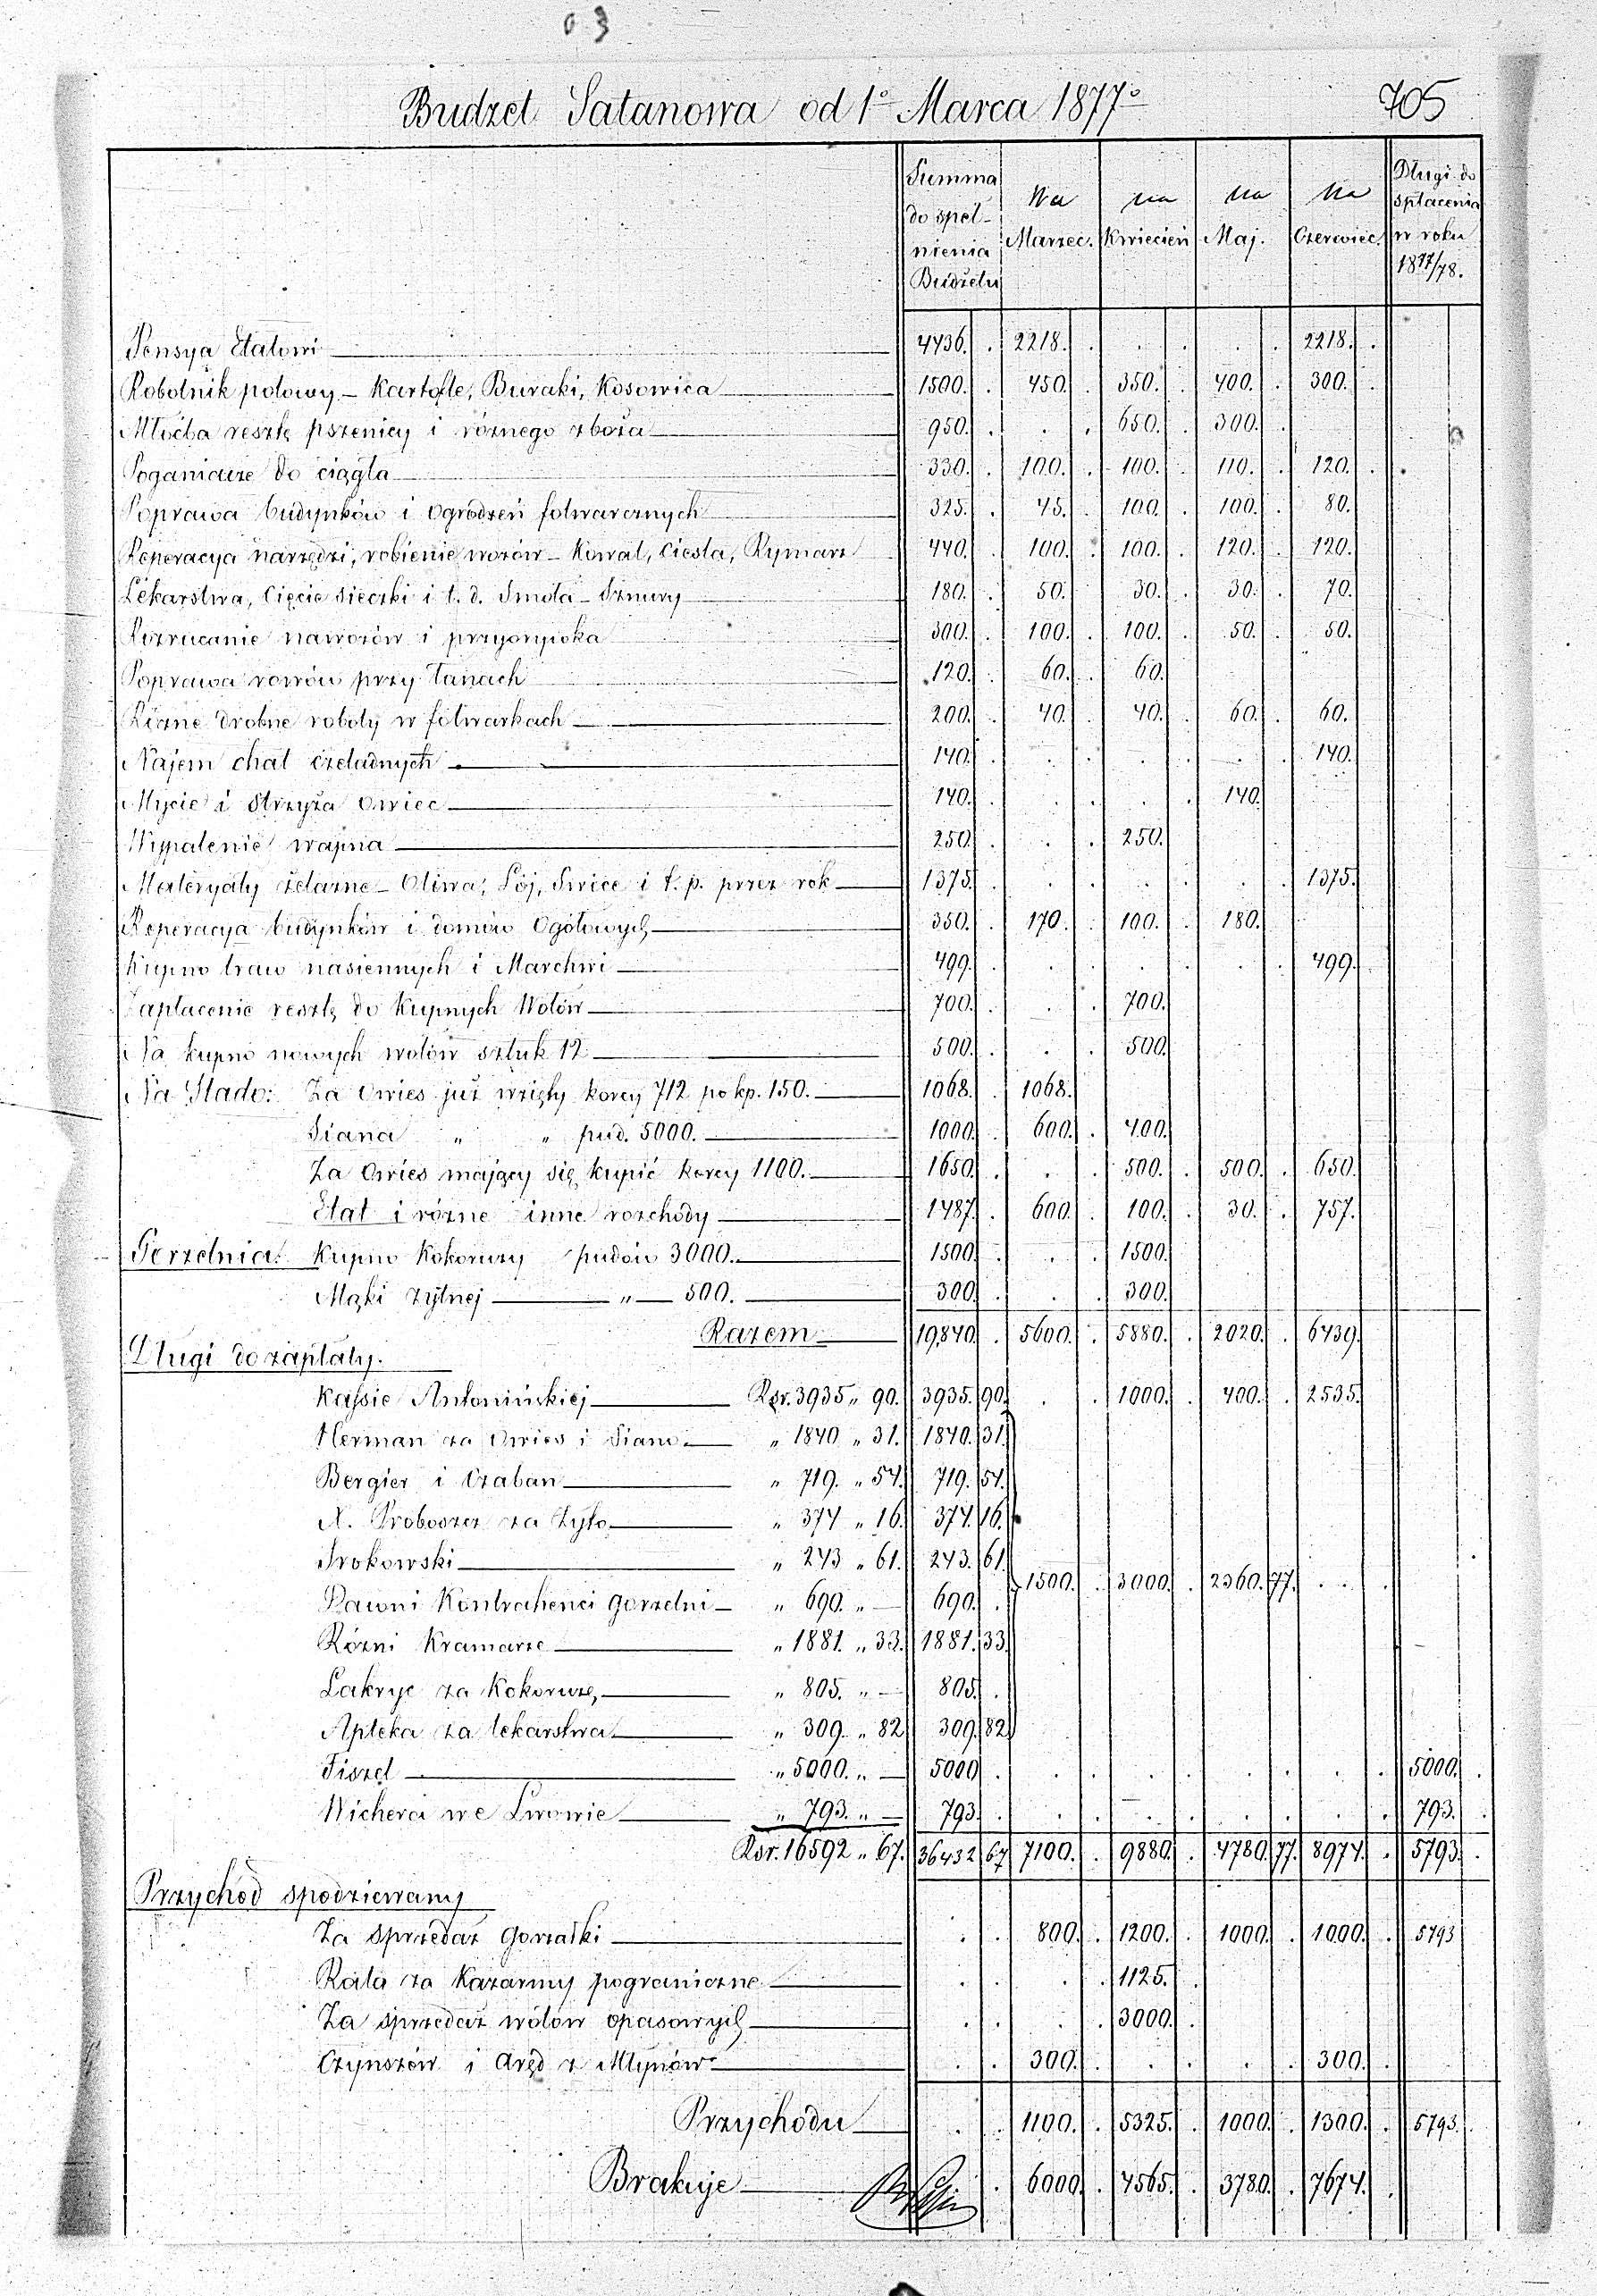 03
Budżet Satanowa od 1º Marca 1877º 705
Summa do spełnienia Budżetu | Na Marzec. | na Kwiecień | na Maj. | Na Czerwiec. | Długi do spłacenia w roku 1877/78.
Pensya Etatowi 4436. . 2218. . . . . . 2218. .
Robotnik polowy – Kartofle, Buraki, Kosowica 1500. . 450. . 350. . 400. . 300. .
Młócba resztę pszenicy i różnego zboża 950. . . . 650. . 300. .
Poganiacze do ciągła 330. . 100. . 100. . 110. . 120. .
Poprawa budynków i ogrodzeń folwarcznych 325. . 45. . 100. . 100. . 80.
Reperacya narzędzi, robienie wozów – Kowal, Ciesla, Rymarz 440. . 100. . 100. . 120. . 120.
Lekarstwa, Cięcie sieczki i t. d. Smoła – Sznury 180. . 50. . 30. . 30. . 70.
Rozrucanie nawozów i 300. . 100. . 100. . 50. . 50.
Poprawa rowów przy Łanach 120. . 60. . 60.
Rózne drobne roboty w folwarkach 200. . 40. . 40. . 60. . 60.
Najem chat czeladnych 140. . . . . . . . 140.
Mycie i Strzyża Owiec 140. . . . . . 140.
Wypalenie wapna 250. . . . 250.
Materyały żelazne – Oliwa, Łój, Swice i t. p. przez rok 1375. . . . . . . . 1375.
Reperacya budynków i domów Ogółowych 350. . 170. . 100. . 180.
Kupno traw nasiennych i Marchwi 499. . . . . . . . 499.
Zapłacenie resztę do Kupnych Wołów 700. . . . 700.
Na kupno nowych wołów sztuk 12 500. . . . 500.
Na Stado: Za Owies już wzięty korcy 712 po kp. 150. 1068. . 1068.
Siana „ „ pud. 5000. 1000. . 600. . 400.
Za Owies mający się kupić korcy 1100. 1650. . . . 500. . 500. . 650.
Etat i rózne inne rozchody 1487. . 600. . 100. . 30. . 757.
Gorzelnia: Kupno Kokoruzy pudów 3000. 1500. . . . 1500.
Mąki żytnej „ 500. 300. . . . 300.
Razem 19,840. . 5600. . 5880. . 2020. . 6439.
Długi do zapłaty.
Kassie Antonińskiej Rsr. 3935 „ 90. 3935. 90. . . 1000. . 400. . 2535.
Herman za Owies i Siano „ 1840 „ 31. 1840. 31.
Bergier i Czaban „ 719. „ 54. 719. 54.
X. Proboszcz za Żyto „ 374 „ 16. 374. 16.
Srokowski „ 243 „ 61. 243. 61.
1500. . 3000. . 2360. 77. . . .
Dawni Kontrahenci gorzelni „ 690. „ — 690. .
Rózni Kramarze „ 1881. „ 33. 1881. 33.
Lakryc za Kokoruzę „ 805. „ — 805. .
Apteka za lekarstwa „ 309. „ 82 309. 82
Fiszel „ 5000. „ — 5000 . . . . . . . . . 5000. .
Wicherci we Lwowie „ 793. „ — 793. . . . . . . . . . 793. .
Rsr. 16592 „ 67. 36432 67 7100. . 9880. . 4780. 77. 8974. . 5793. .
Przychód spodziewany
Za sprzedaż gorzałki . . 800. . 1200. . 1000. . 1000. . 5793
Rata za Kazarmy pograniczne . . . . 1125. .
Za sprzedaż wołów opasowych . . . . 3000. .
Czynszów i Aręd z Młynów . . 300. . . . . . 300. .
Przychodu . . 1100. . 5325. . 1000. . 1300. . 5793. .
Brakuje . 6000. . 4565. . 3780. . 7674. .